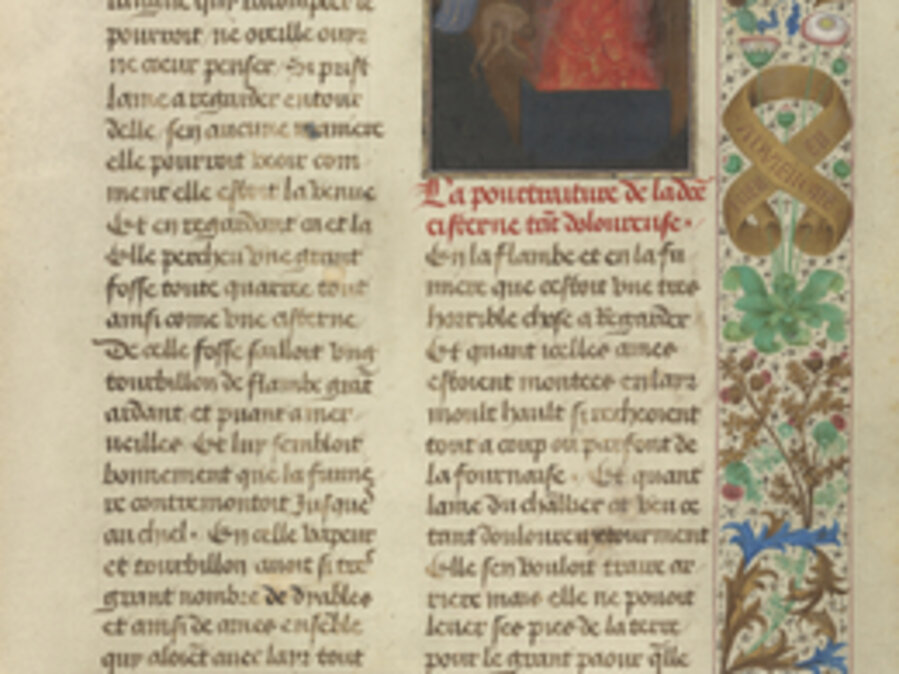 pourroit ne oreille ouyr
ne coeur penser. Si prist
lame a regarder entour
delle sen aucune maniere
elle pourroit veoir com
ment elle estoit la venue
Et en regardant ca et la
Elle percheu vne grant
fosse toute quarree tout
ainsi come vne cisterne
De celle fosse sailloit vng
tourbillon de flambe grāt
ardant et puant a mer
ueilles. Et luy sembloit
bonnement que la fumee
re contremontoit Jusque
au chiel. En celle vapeur
et tourbillon auoit si tres
grant nombre de dyables
et ainsi de ames ensēble
quy aloiēt auec lair tout
La pourtraiture de la dce
cisterne tāt doloureuse.
En la flambe et en la fu
miere que cestoit vne tres
horrible chose a Regarder
Et quant icelles ames
estoient montees en lair
moult hault si recheoient
tout a coup ou parfont de
la fournaise. Et quant
lame du cheualier et veu ce
tant douloureux tourment
Elle sen vouloit traire ar
riere mais elle ne pouoit
leuer ses pies de la terre
pour le grant paour q̄lle